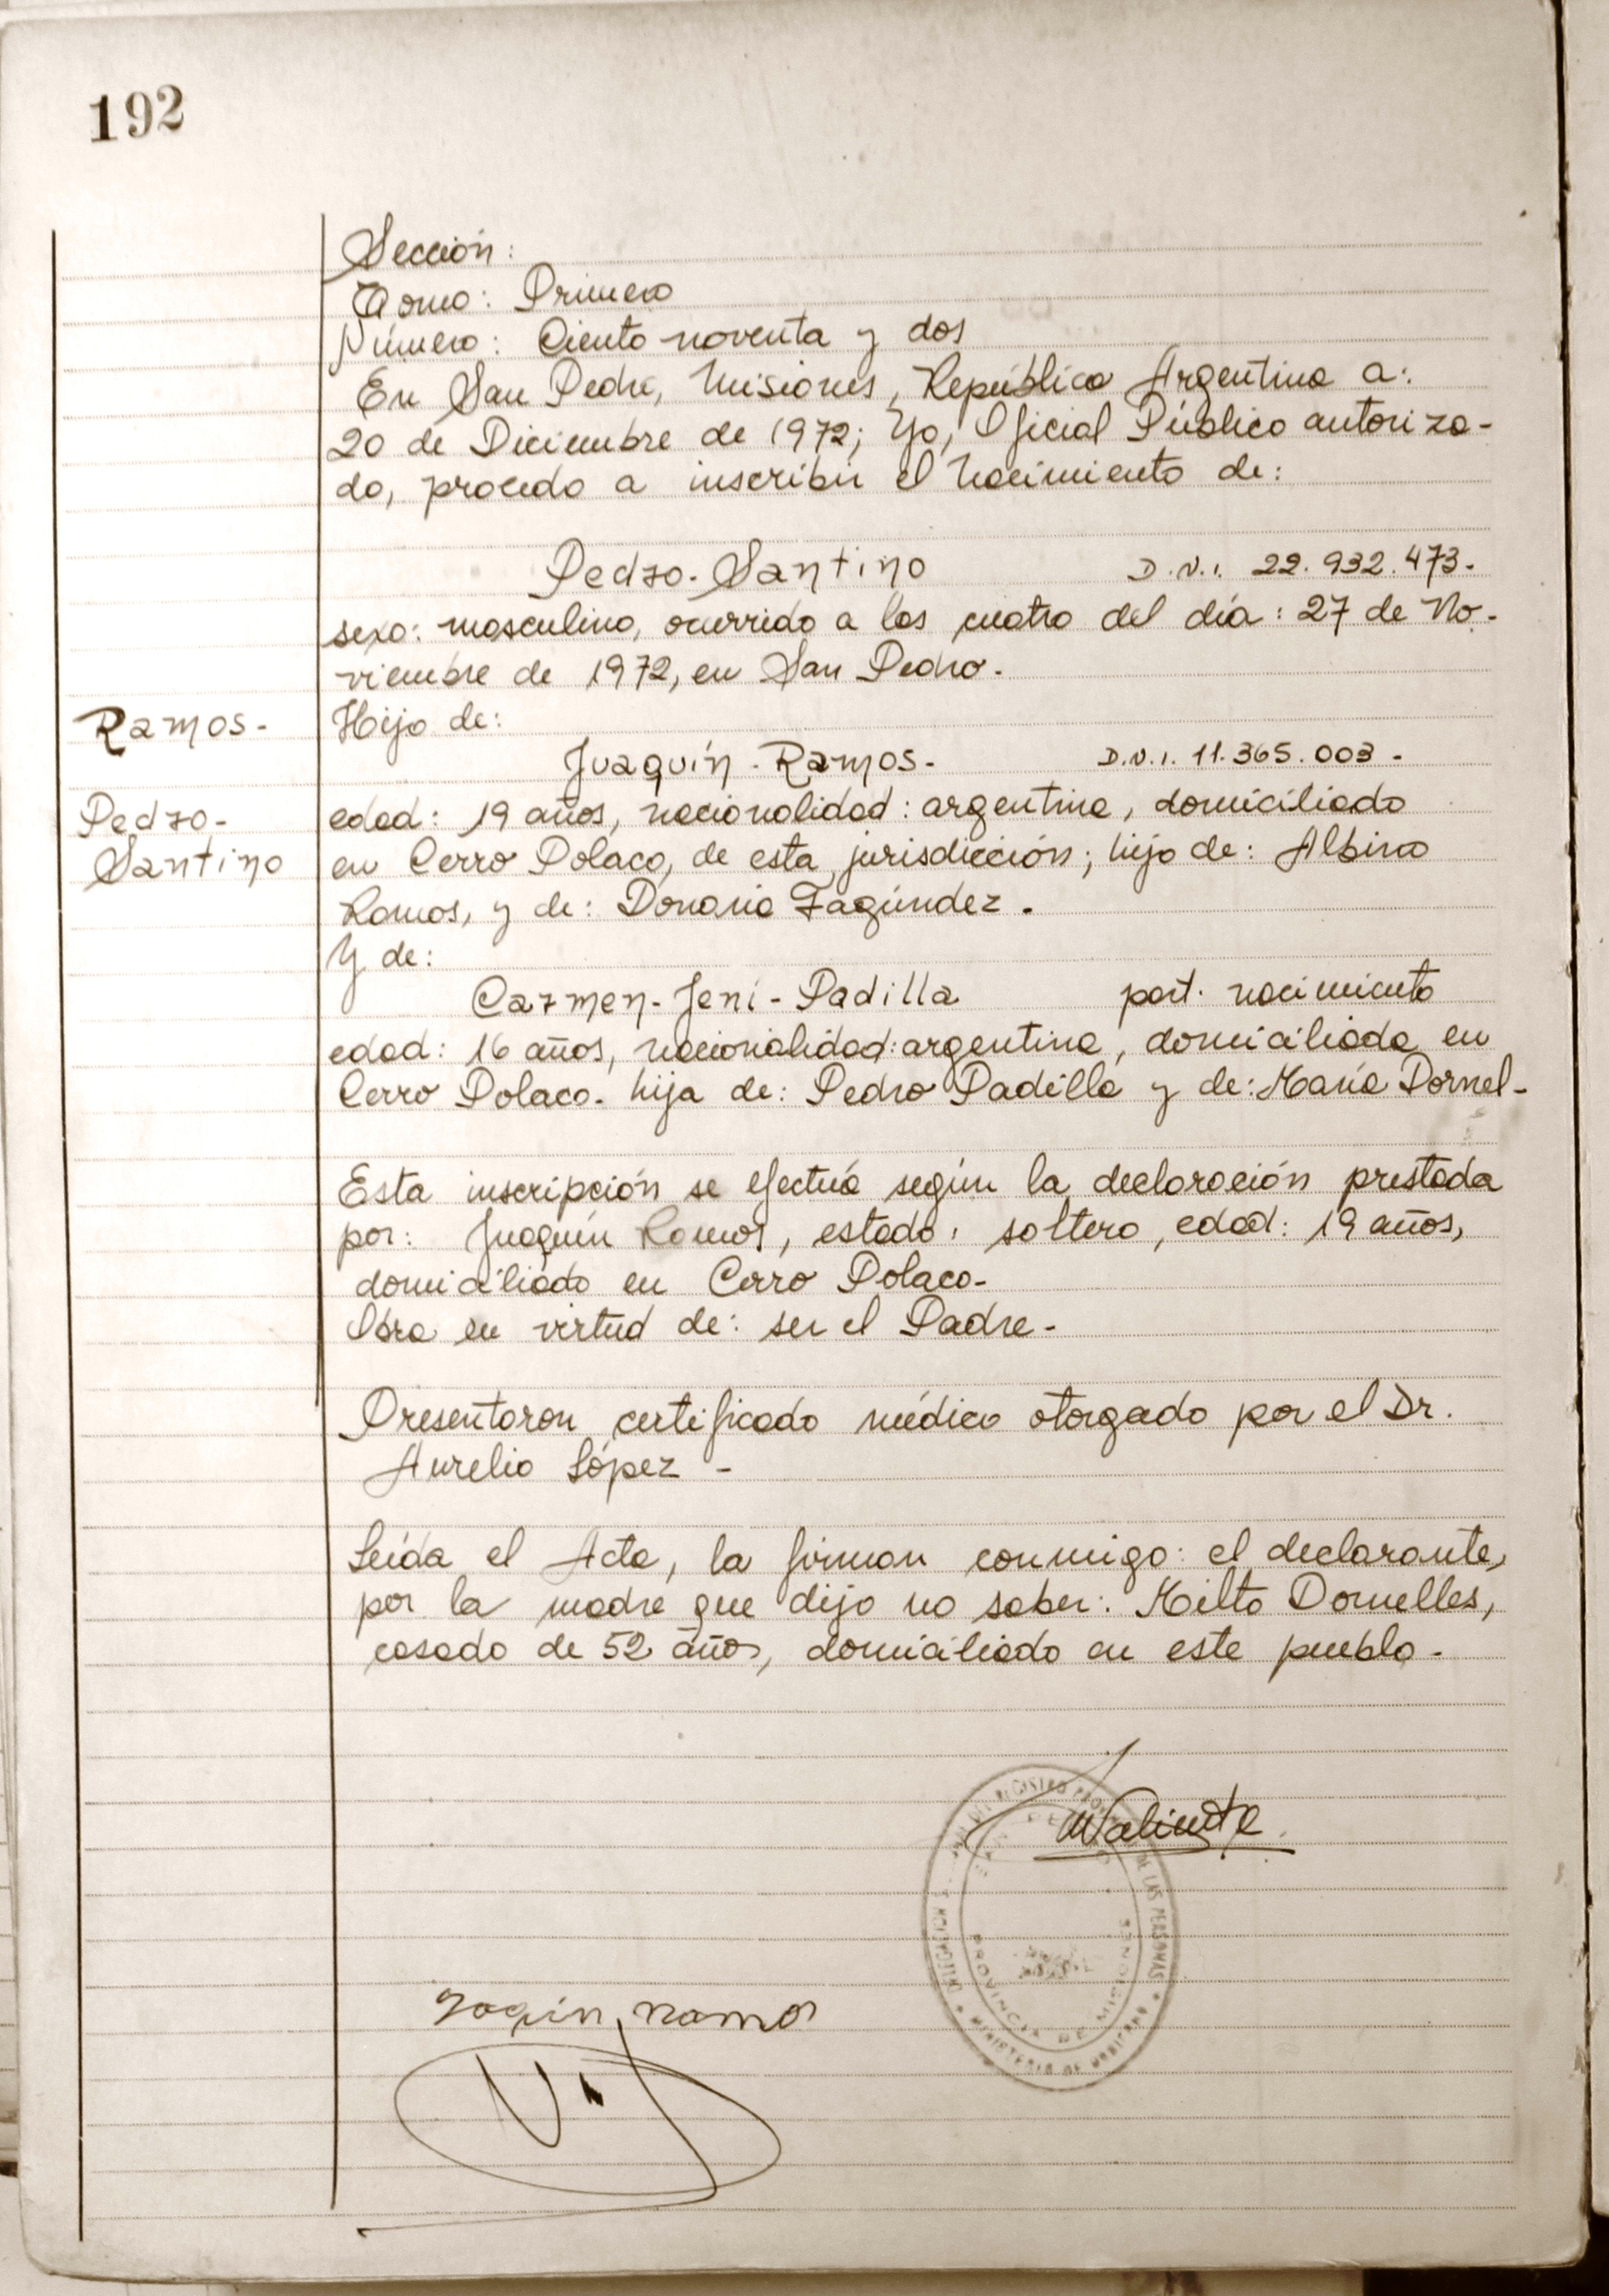 192
Sección:
Tomo: Primero
Número: Ciento noventa y dos
En San Pedro, Misiones, República Argentina a:
20 de Diciembre de 1972; Yo, Oficial Público autoriza-
do, procedo a inscribir el Nacimiento de:
Pedro-Santino D.N.I. 22.932.473.
sexo: masculino, ocurrido a las cuatro del día: 27 de No-
viembre de 1972, en San Pedro-
Ramos-
Hijo de:
Juaquín-Ramos- D.N.I. 11.365.003-
Pedro-
Santino
edad: 19 años, nacionalidad: argentina, domiciliado
en Cerro Polaco, de esta jurisdicción; hijo de: Albino
Ramos, y de: Donaria Fagúndez.
Y de:
Carmen-Jeni-Padilla part. nacimiento
edad: 16 años, nacionalidad: argentina, domiciliada en
Cerro Polaco- hija de: Pedro Padilla y de: María Dornel-
Esta inscripción se efectúa según la declaración prestada
por: Juaquín Ramos, estado: soltero, edad: 19 años,
domiciliado en Cerro Polaco-
Obra en virtud de: ser el Padre-
Presentaron certificado médico otorgado por el Dr.
Aurelio López-
Leída el Acta, la firman conmigo: el declarante,
por la madre que dijo no saber: Milto Dornelles,
casado de 52 años, domiciliado en este pueblo-
DELEGACION REGISTRO DE LAS PERSONAS
PROVINCIA DE MISIONES
MINISTERIO DE
Joaqin ramos